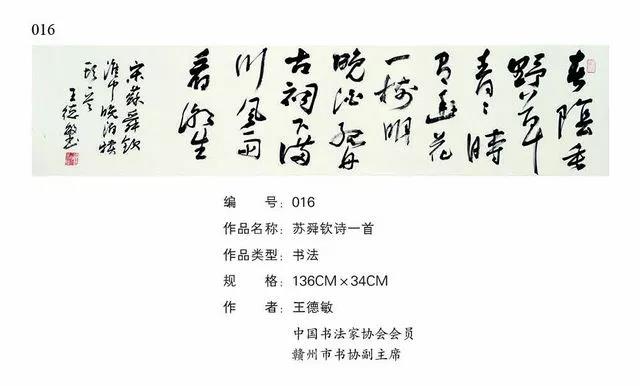 016
春陰垂
野草
青々時
有幽花
一樹明
晚泊孤舟
古祠下滿
川風雨
看潮生
宋蘇舜欽
淮中晚泊犢
頭
王德敏
编 号：016
作品名称：苏舜钦诗一首
作品类型：书法
规 格：136CM×34CM
作 者：王德敏
中国书法家协会会员
赣州市书协副主席